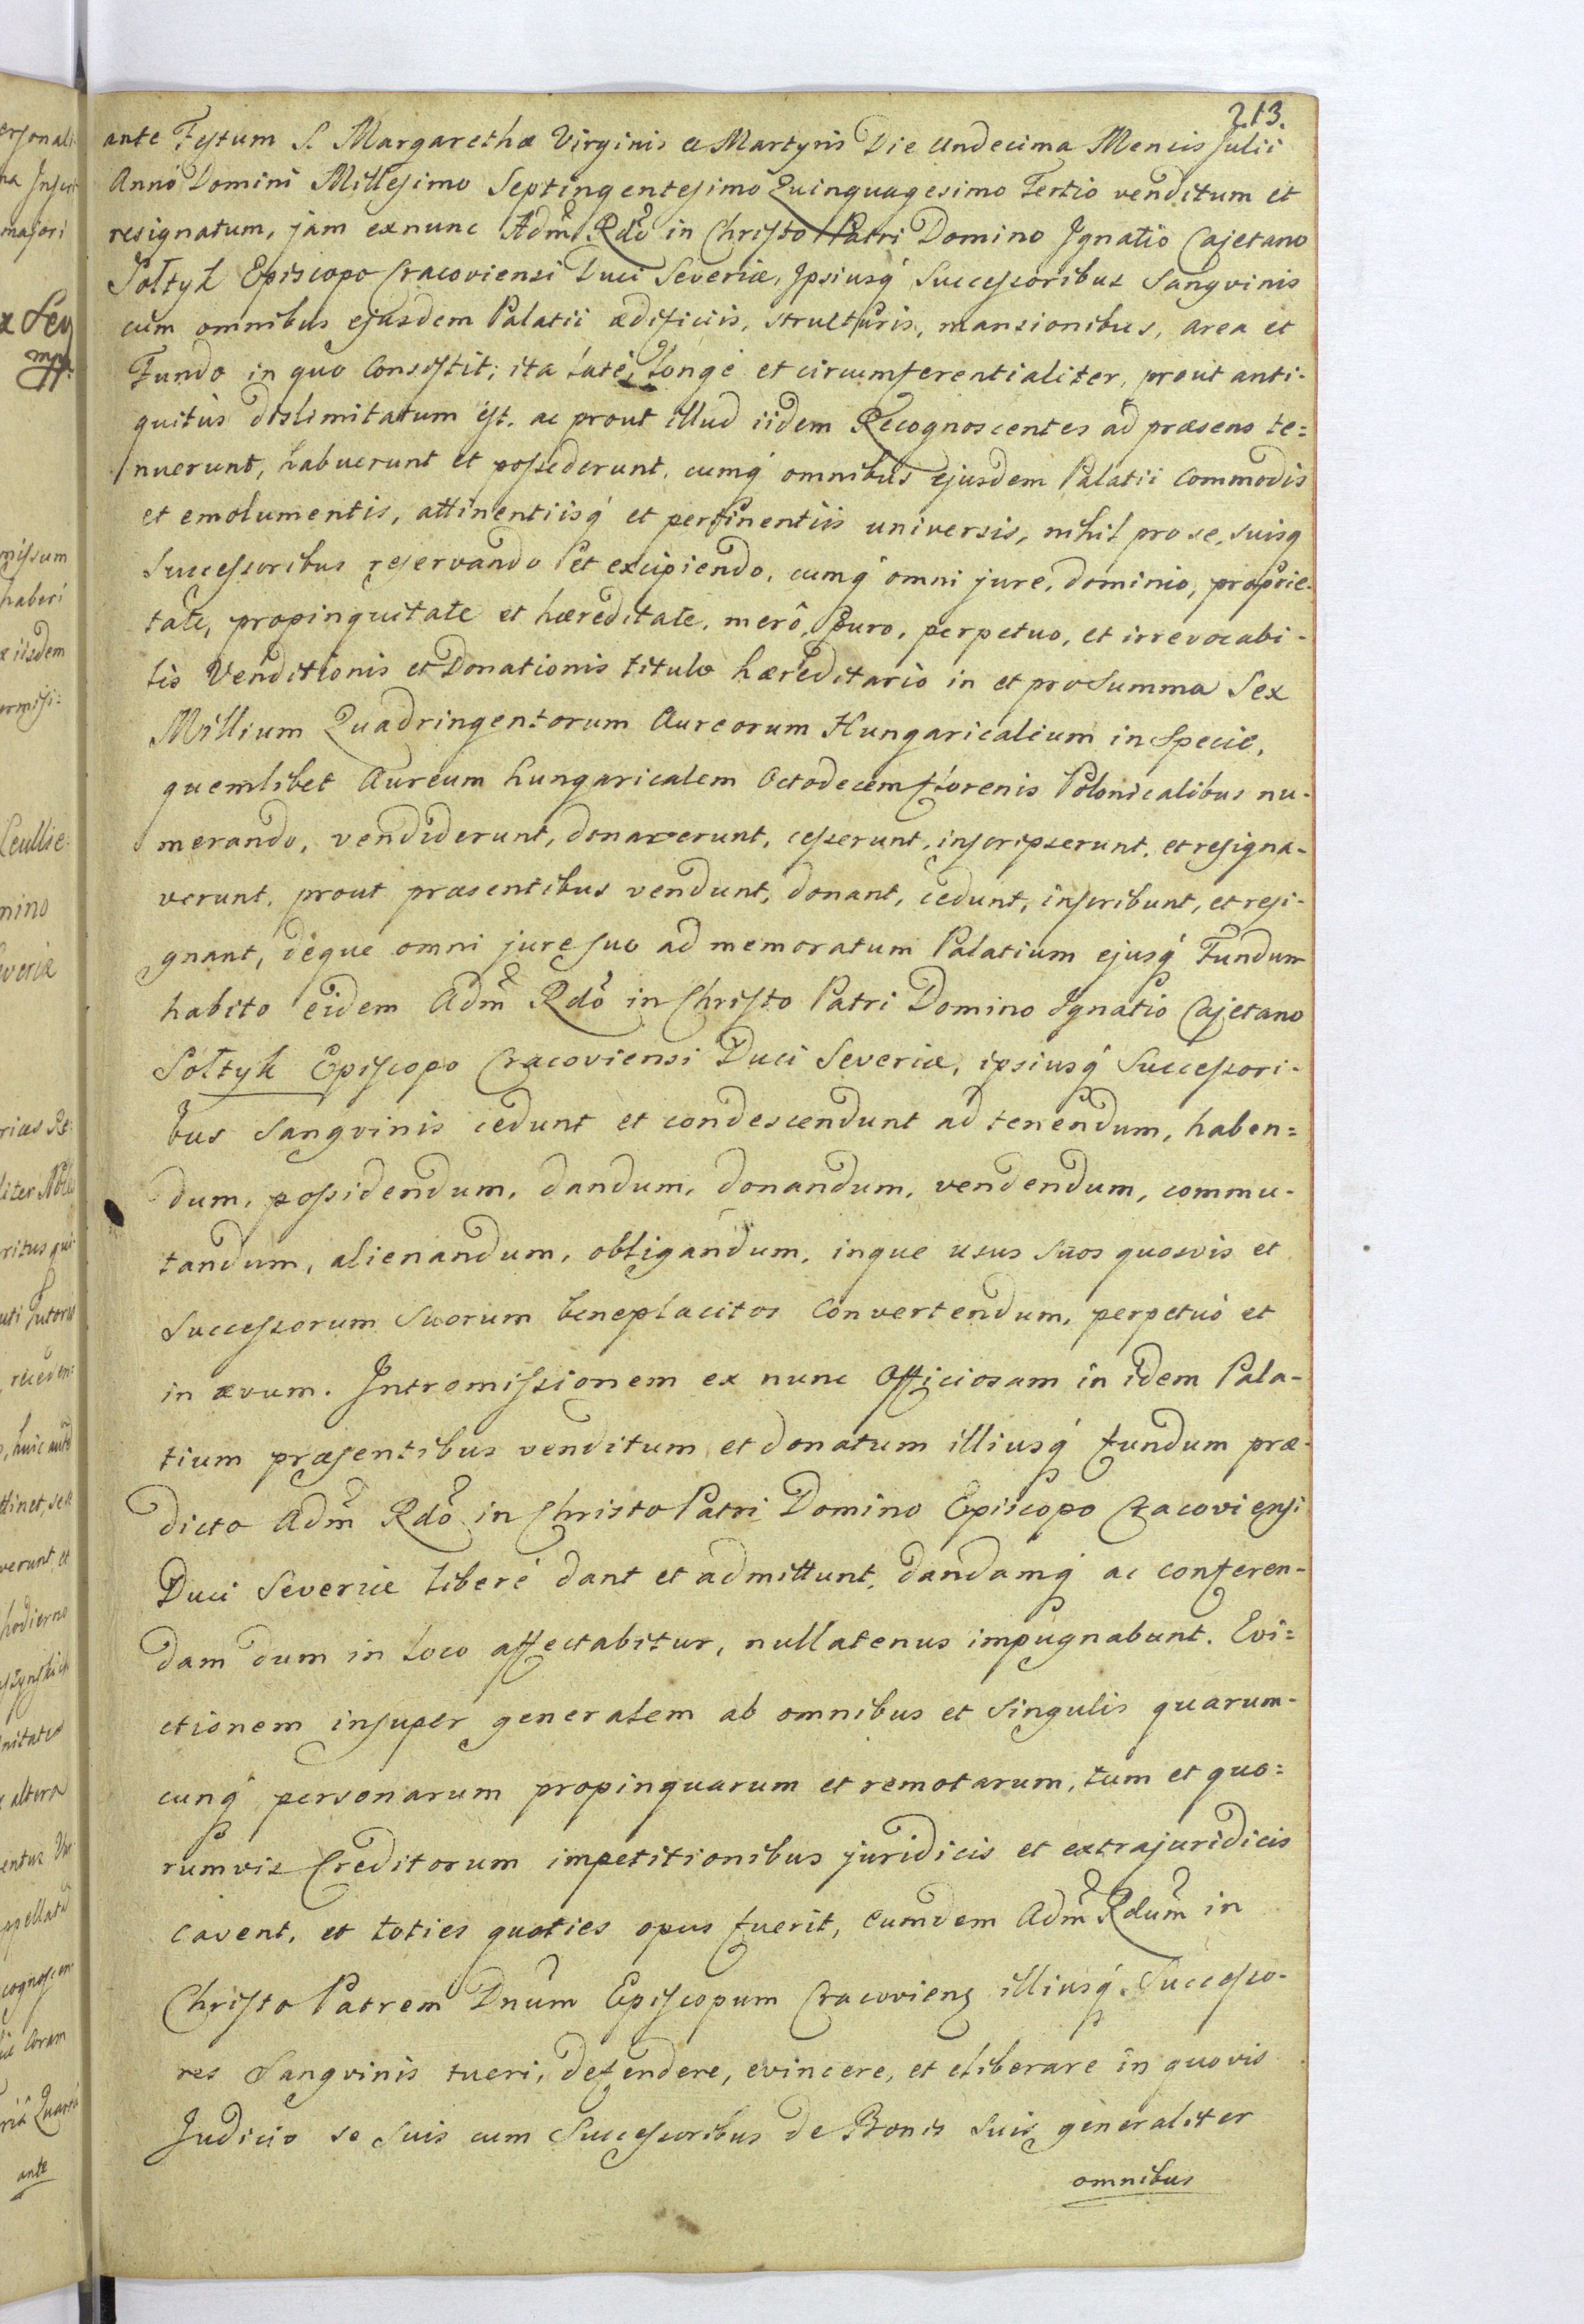 213.
ante Festum S. Margarethæ Virginis et Martyris Die Undecima Mensis Julii
Annô Domini Millesimo Septingentesimô Quinquagesimo Tertio venditum et
resignatum, jam exnunc Adm̃ Rdõ in Christo Patri Domino Ignatio Cajetano
Sołtyk Episcopo Cracoviensi Duci Severiæ, Ipsiusq́ Successoribus Sangvinis
cum omnibus ejusdem Palatii ædificiis, structuris, mansionibus, area et
Fundo in quo Consistit; ita latè, longè et circumferentialiter, prout anti-
quitùs dislimitatum est. ac prout illud iidem Recognoscentes ad præsens te=
nuerunt, habuerunt et possederunt. cumq́ omnibus ejusdem Palatii Commodis
et emolumentis, attinentiisq́ et pertinentiis universis, nihil pro se, suisq
Successoribus reservando et excipiendo, cumq́ omni jure, dominio, proprie-
tate, propinquitate et hæreditate, merô, puro, perpetuo, et irrevocabi-
lis Venditionis et Donationis titulo hæreditario in et pro Summa Sex
Millium Quadringentorum Aureorum Hungaricalium in Specie,
quemlibet Aureum hungaricalem Octodecem florenis Polonicalibus nu-
merando, vendiderunt, donaverunt, cesserunt, inscripserunt, et resigna-
verunt, prout præsentibus vendunt, donant, cedunt, inscribunt, et resi-
gnant, dèque omni jure suo ad memoratum Palatium ejusq́ Fundum
habito eidem Adm̃ Rdõ in Christo Patri Domino Ignatio Cajetano
Sołtyk Episcopo Cracoviensi Duci Severiæ, ipsiusq́ Successori-
bus Sangvinis cedunt et condescendunt ad tenendum, haben=
dum, possidendum, dandum, donandum, vendendum, commu-
tandum, alienandum, obligandum, inque usus suos quosvis et
Successorum Suorum beneplacitos Convertendum, perpetuò et
in ævum. Intromissionem ex nunc Officiosam in idem Pala-
tium præsentibus venditum et donatum illiusq́ fundum præ-
dicto Adm̃ Rdõ in Christo Patri Domino Episcopo Cracoviensi
Duci Severiæ liberè dant et admittunt, dandamq́ ac conferen-
dam dum in loco affectabitur, nullatenus impugnabunt. Evi=
ctionem insuper generalem ab omnibus et Singulis quarum-
cunq́ personarum propinquarum et remotarum, tum et quo=
rumvis Creditorum impetitionibus juridicis et extrajuridicis
cavent, et toties quoties opus fuerit, eumdem Adm̃ Rdum̃ in
Christo Patrem Dnum̃ Episcopum Cracovienş illiusq́ Successo-
res Sangvinis tueri, defendere, evincere, et eliberare in quovis
Judicio se suis cum Successoribus de Bonis suis generaliter
omnibus